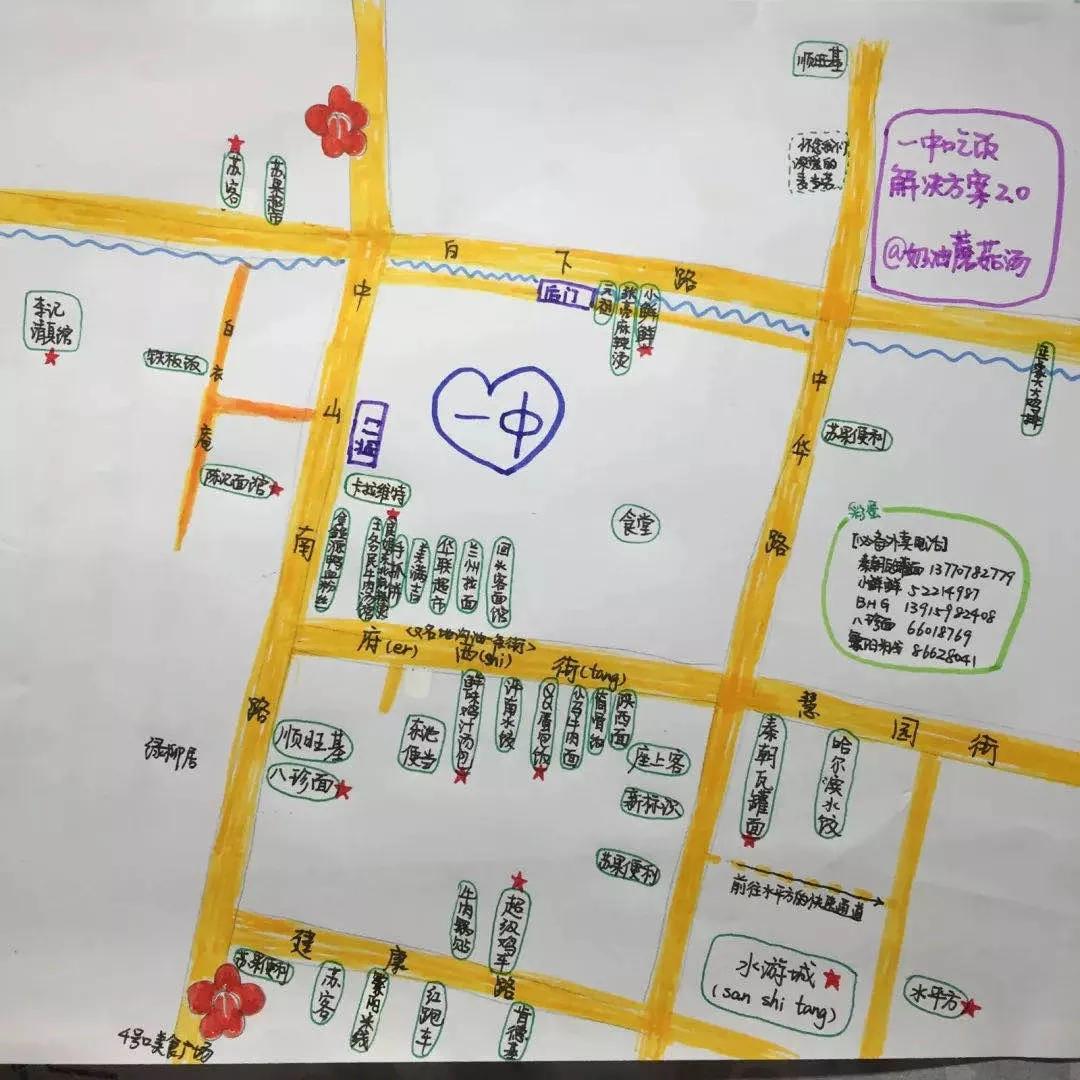 顺旺基
一中吃饭
解决方案2.0
@奶油蘑菇汤
怀念我们
深深的
麦当劳
苏客
苏果超市
白下路
中山南路
后门
元祖
张亮麻辣烫
小鲜鲜
李记
清真馆
铁板饭
白衣庵
陈记面馆
正门
一中
中华路
苏果便利
正豪大大鸡排
卡拉维特
食堂
王务民牛肉汤馆
手抓饼
麦满吉
华联超市
兰州拉面
回水客面馆
彩蛋
【必备外卖电话】
秦朝瓦罐面 13770782779
小鲜鲜 52214987
BHG 13915982408
八珍面 66018769
襄阳米线 86628041
<又名地沟油一条街>
府(er)西(shi)街(tang)
慧园街
绿柳居
顺旺基
八珍面
东池
便当
鲜陕鸡汁汤包
沂南水饺
QQ蛋包饭
小马牛肉面
陕西面
座上客
新标识
苏果便利
秦朝瓦罐面
哈尔滨水饺
前往水平方的快速通道
牛肉锅贴
超级鸡车
建康路
苏果便利
苏客
襄阳米线
红跑车
肯德基
水游城
(san shi tang)
水平方
4号口美食广场